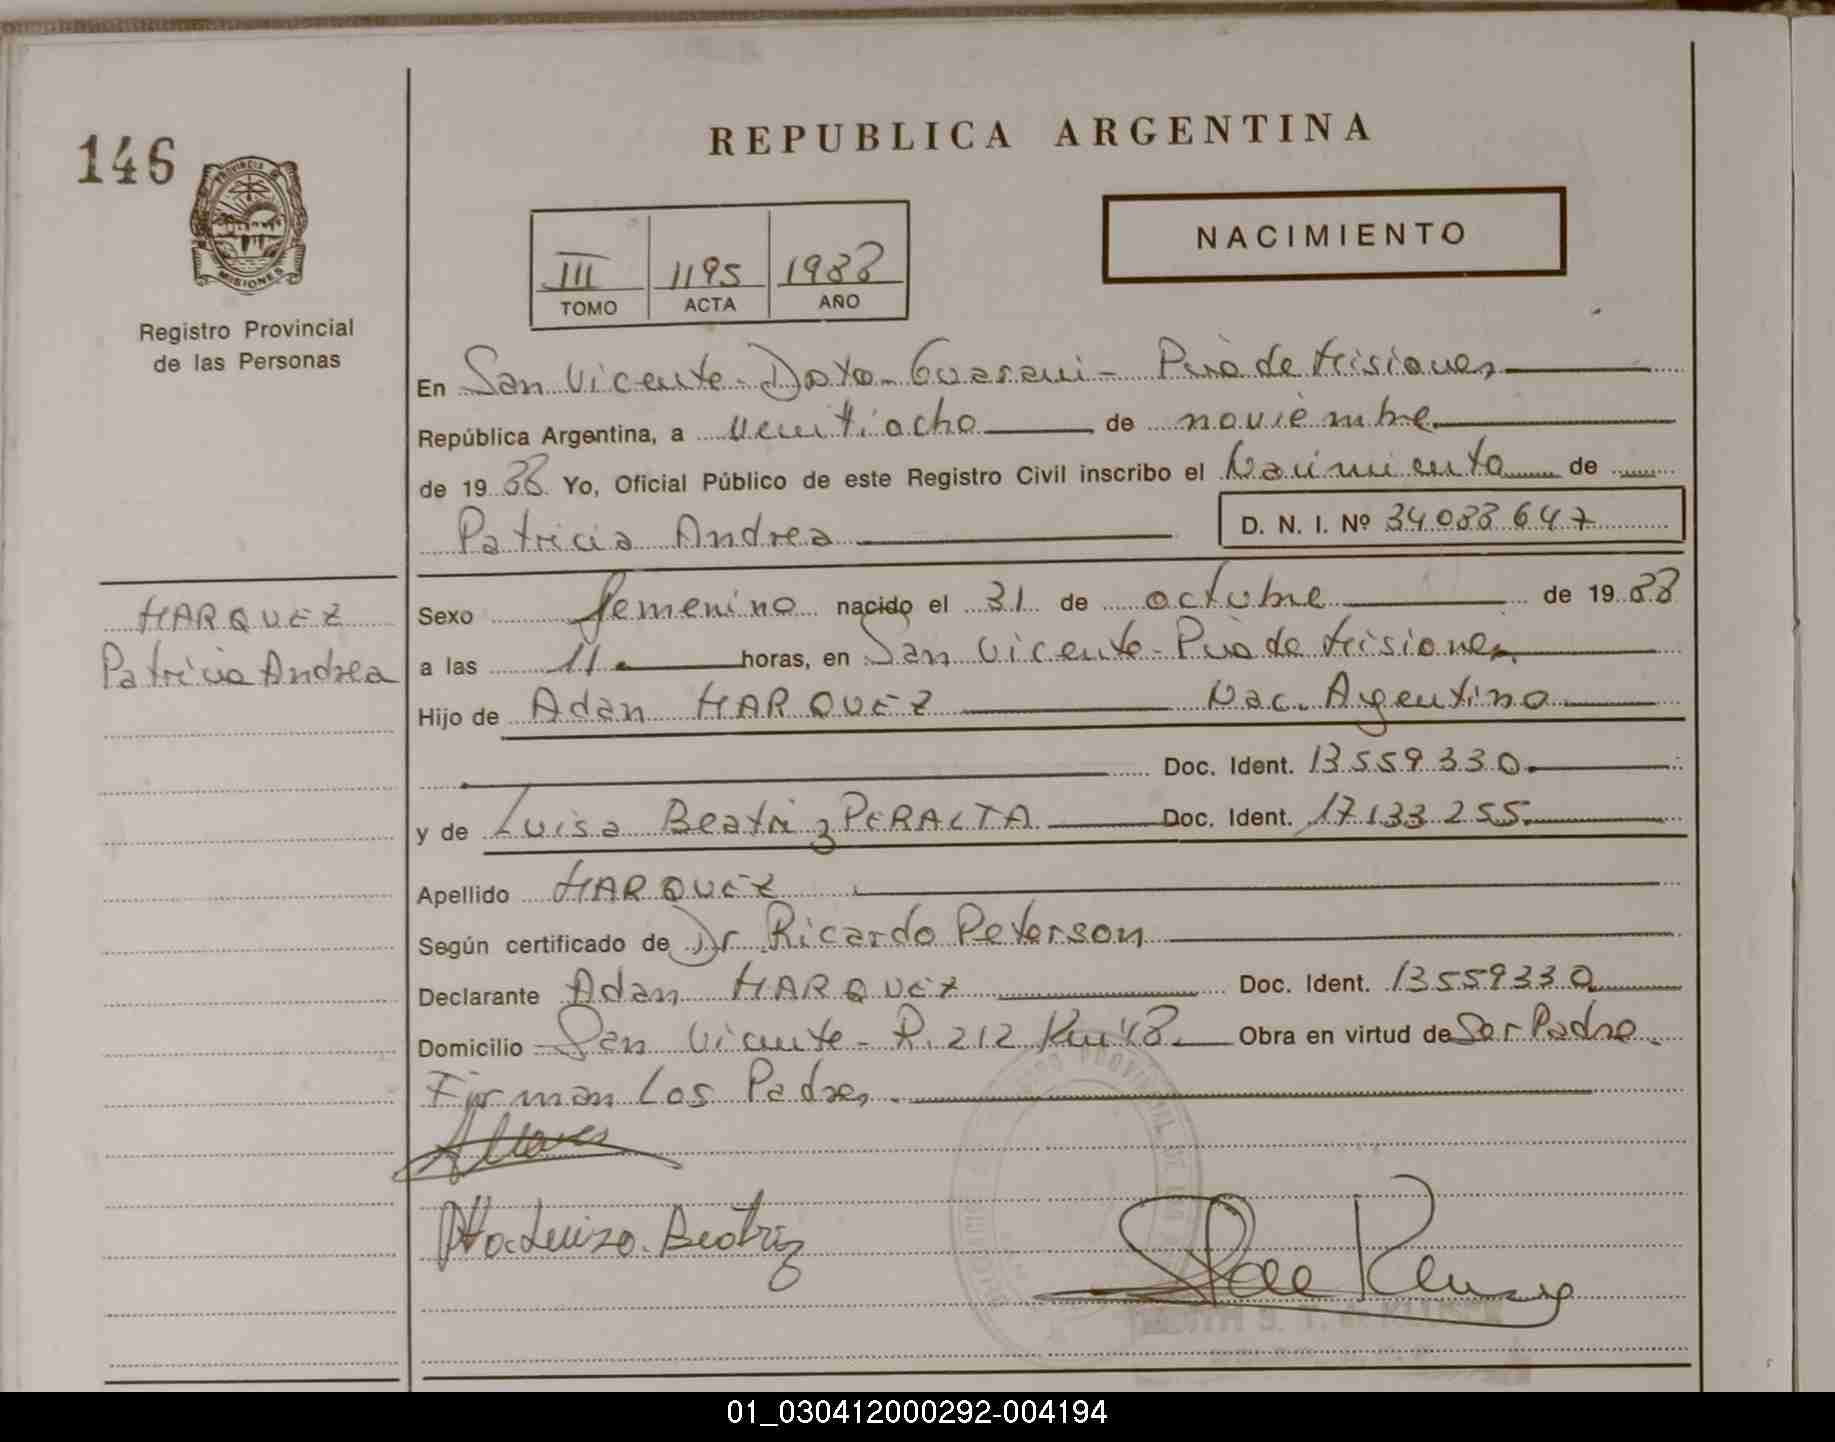 REPUBLICA ARGENTINA
146
PROVINCIA DE
MISIONES
Registro Provincial
de las Personas
III 1195 1988
TOMO ACTA AÑO
NACIMIENTO
En San Vicente - Dpto - Guarani - Pvia de Misiones
República Argentina, a veintiocho de noviembre
de 1988 Yo, Oficial Público de este Registro Civil inscribo el Nacimiento de
Patricia Andrea D. N. I. Nº 34088647
MARQUEZ
Patricia Andrea
Sexo femenino nacido el 31 de octubre de 1988
a las 11 horas, en San Vicente - Pvia de Misiones
Hijo de Adan MARQUEZ Nac. Argentino
Doc. Ident. 13559330
y de Luisa Beatriz PERALTA Doc. Ident. 17133255
Apellido MARQUEZ
Según certificado de Dr Ricardo Peterson
Declarante Adan MARQUEZ Doc. Ident. 13559330
Domicilio San Vicente - R. 212 Km 48 Obra en virtud de Ser Padre
Firman Los Padres
Luiza Beatriz
01_030412000292-004194